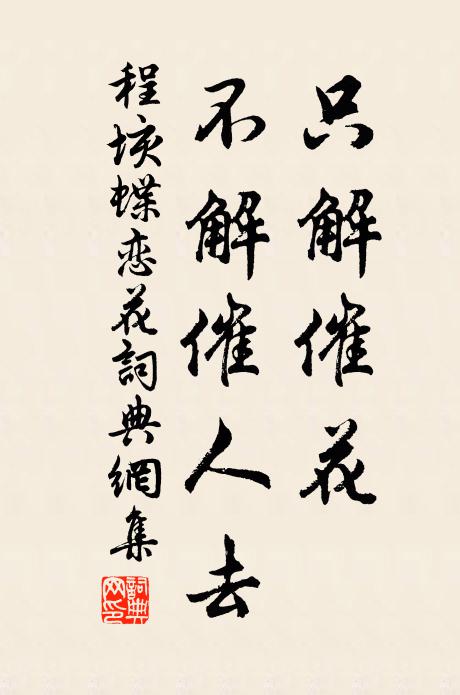 只解催花
不解催人去
程垓蝶恋花詞典網集
詞典网印